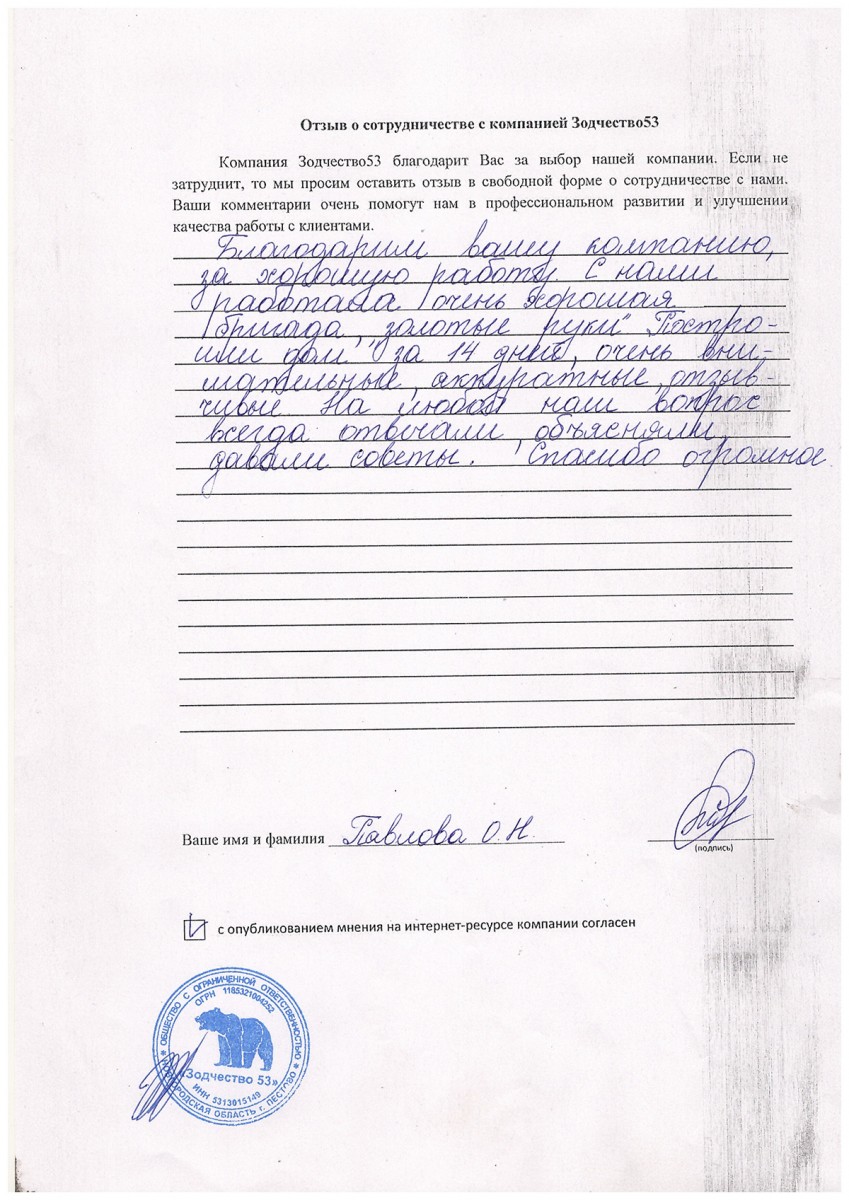 Отзыв о сотрудничестве с компанией Зодчество53
Компания Зодчество53 благодарит Вас за выбор нашей компании. Если не
затруднит, то мы просим оставить отзыв в свободной форме о сотрудничестве с нами.
Ваши комментарии очень помогут нам в профессиональном развитии и улучшении
качества работы с клиентами.
Благодарим вашу компанию,
за хорошую работу. С нами
работала очень хорошая
бригада, "золотые руки" Постро-
или дом за 14 дней, очень вни-
мательные, аккуратные, отзыв-
чивые На любой наш вопрос
всегда отвечали, объясняли,
давали советы. Спасибо огромное
Ваше имя и фамилия Павлова О.Н.
(подпись)
с опубликованием мнения на интернет-ресурсе компании согласен
ОБЩЕСТВО С ОГРАНИЧЕННОЙ ОТВЕТСТВЕННОСТЬЮ
ОГРН 1185321004252
«Зодчество 53»
ИНН 5313015149
НОВГОРОДСКАЯ ОБЛАСТЬ г. ПЕСТОВО